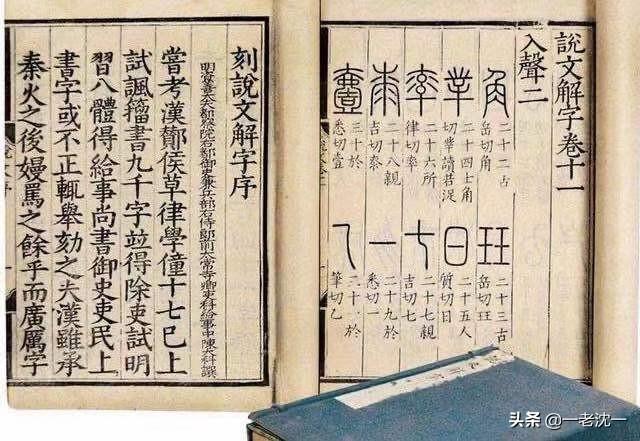 說文解字卷十一
入聲二
角
二十二古
岳切角
玨
二十三古
岳切玨
丵
二十四士角
切丵讀若浞
日
二十五人
質切日
率
二十六所
律切率
七
二十七親
吉切七
桼
二十八親
吉切桼
一
二十九於
悉切一
壹
三十於
悉切壹
乙
三十一於
筆切乙
刻說文解字序
明資善大夫都察院右都御史兼兵部右侍郎前太常寺卿吏科給事中陳大科譔
嘗考漢酇侯草律學僮十七已上
試諷籀書九千字並得除吏試明
習八體得給事尚書御史吏民上
書字或不正輒舉劾之夫漢雖承
秦火之後嫚駡之餘乎而廣厲字
头条 @一老沈一